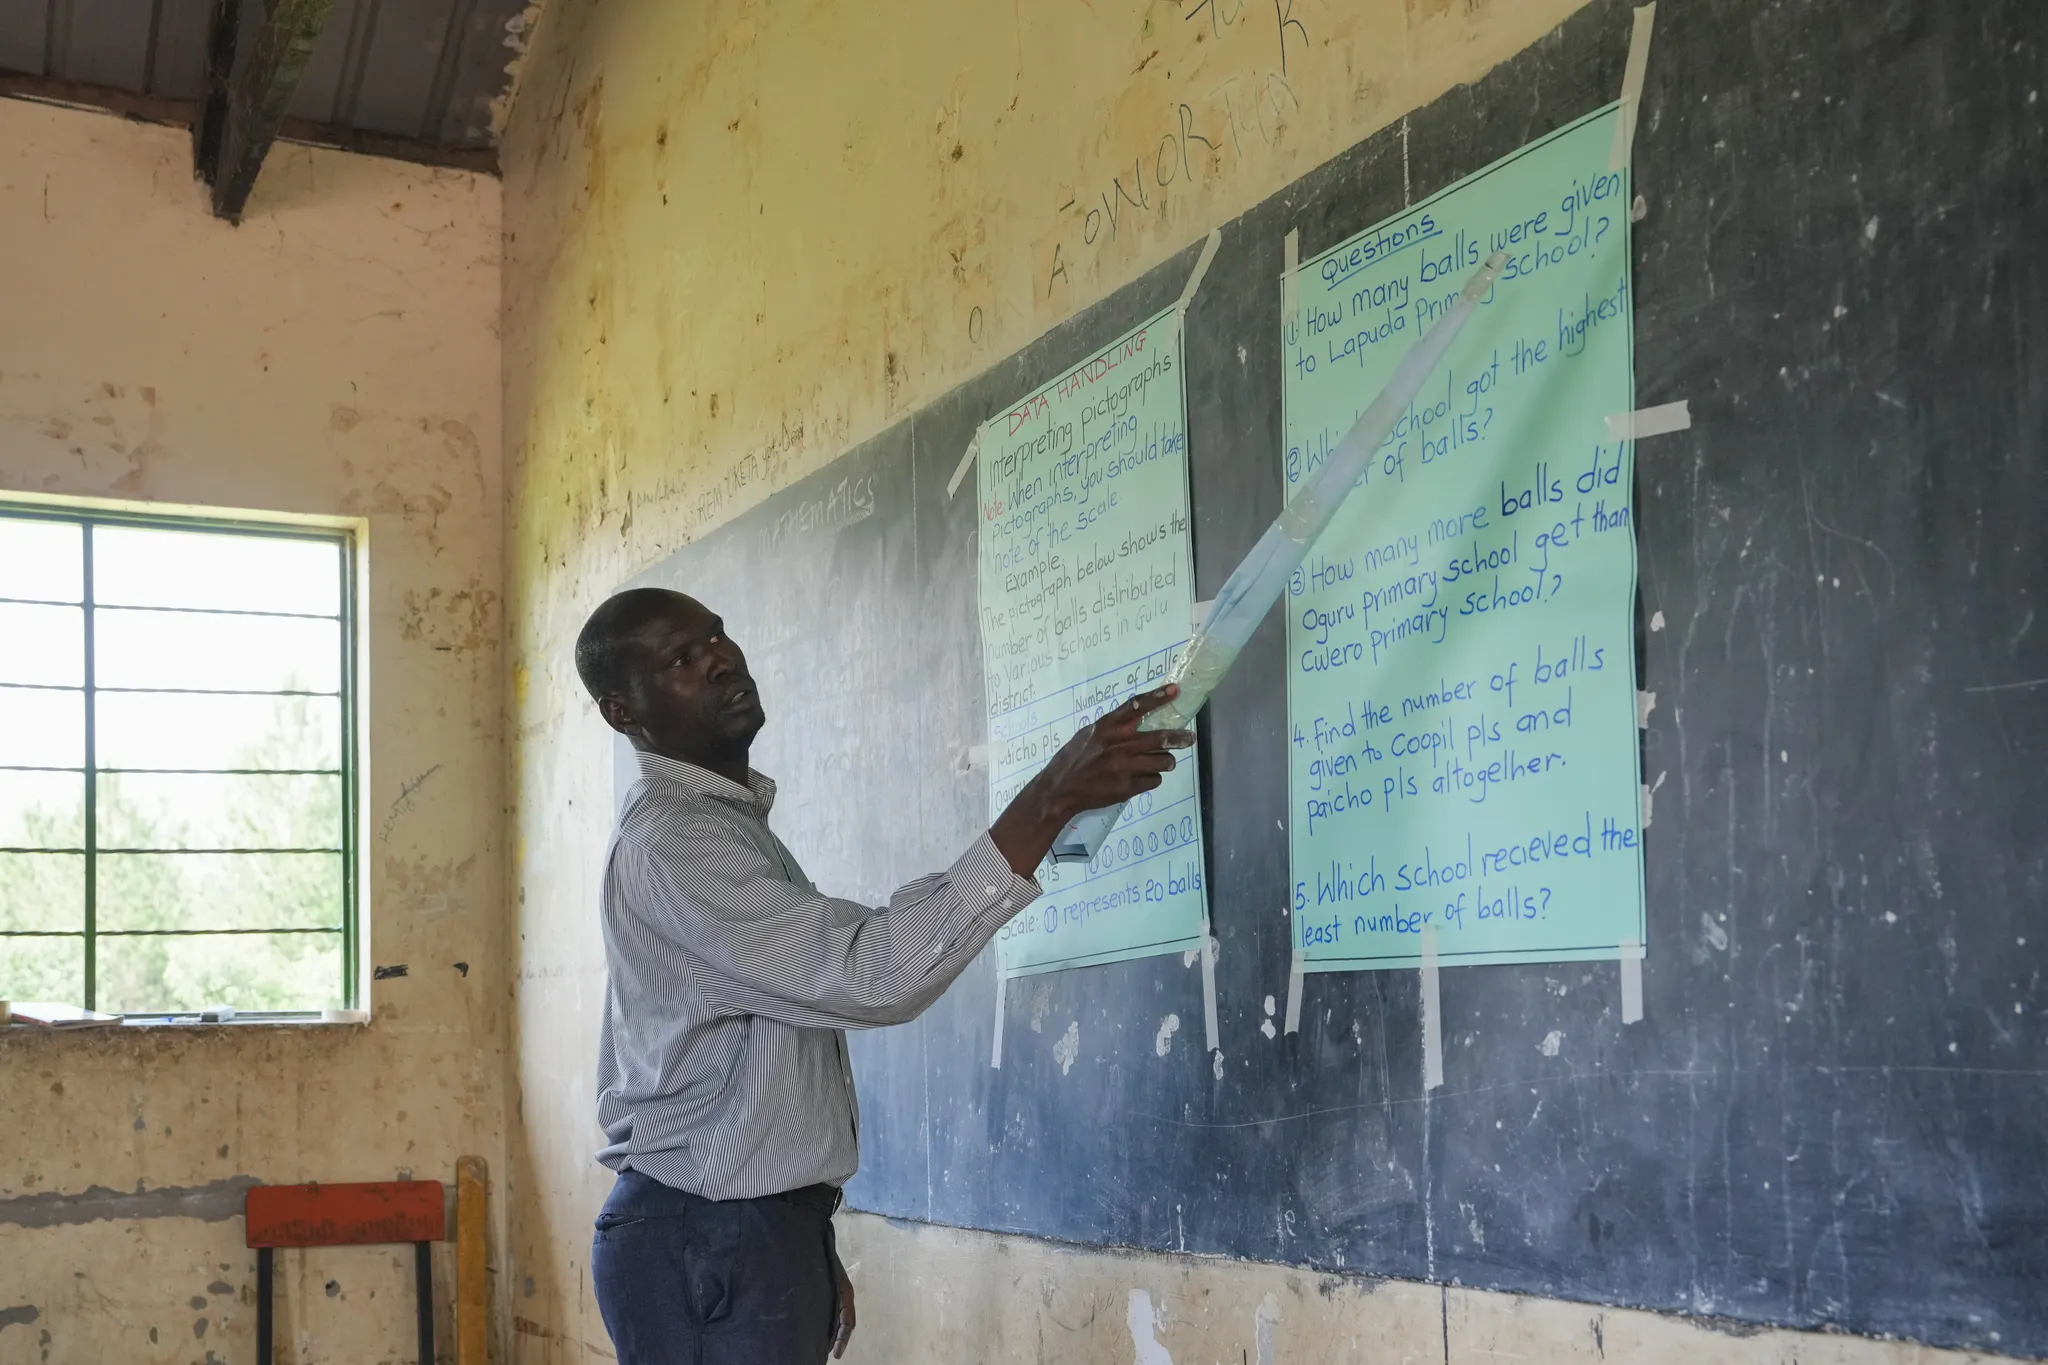 MATHEMATICS
DATA HANDLING
Interpreting pictographs
Note: When interpreting
pictographs, you should take
note of the scale.
Example.
The pictograph below shows the
number of balls distributed
to various schools in Gulu
district.
Schools Number of balls
paicho pls
pls
Scale: represents 20 balls
Questions
1. How many balls were given
to Lapuda primary school?
2 school got the highest
of balls?
3 How many more balls did
Oguru primary school get than
Cwero primary school?
4. Find the number of balls
given to Coopil pls and
paicho pls altogelher.
5. Which school recieved the
least number of balls?